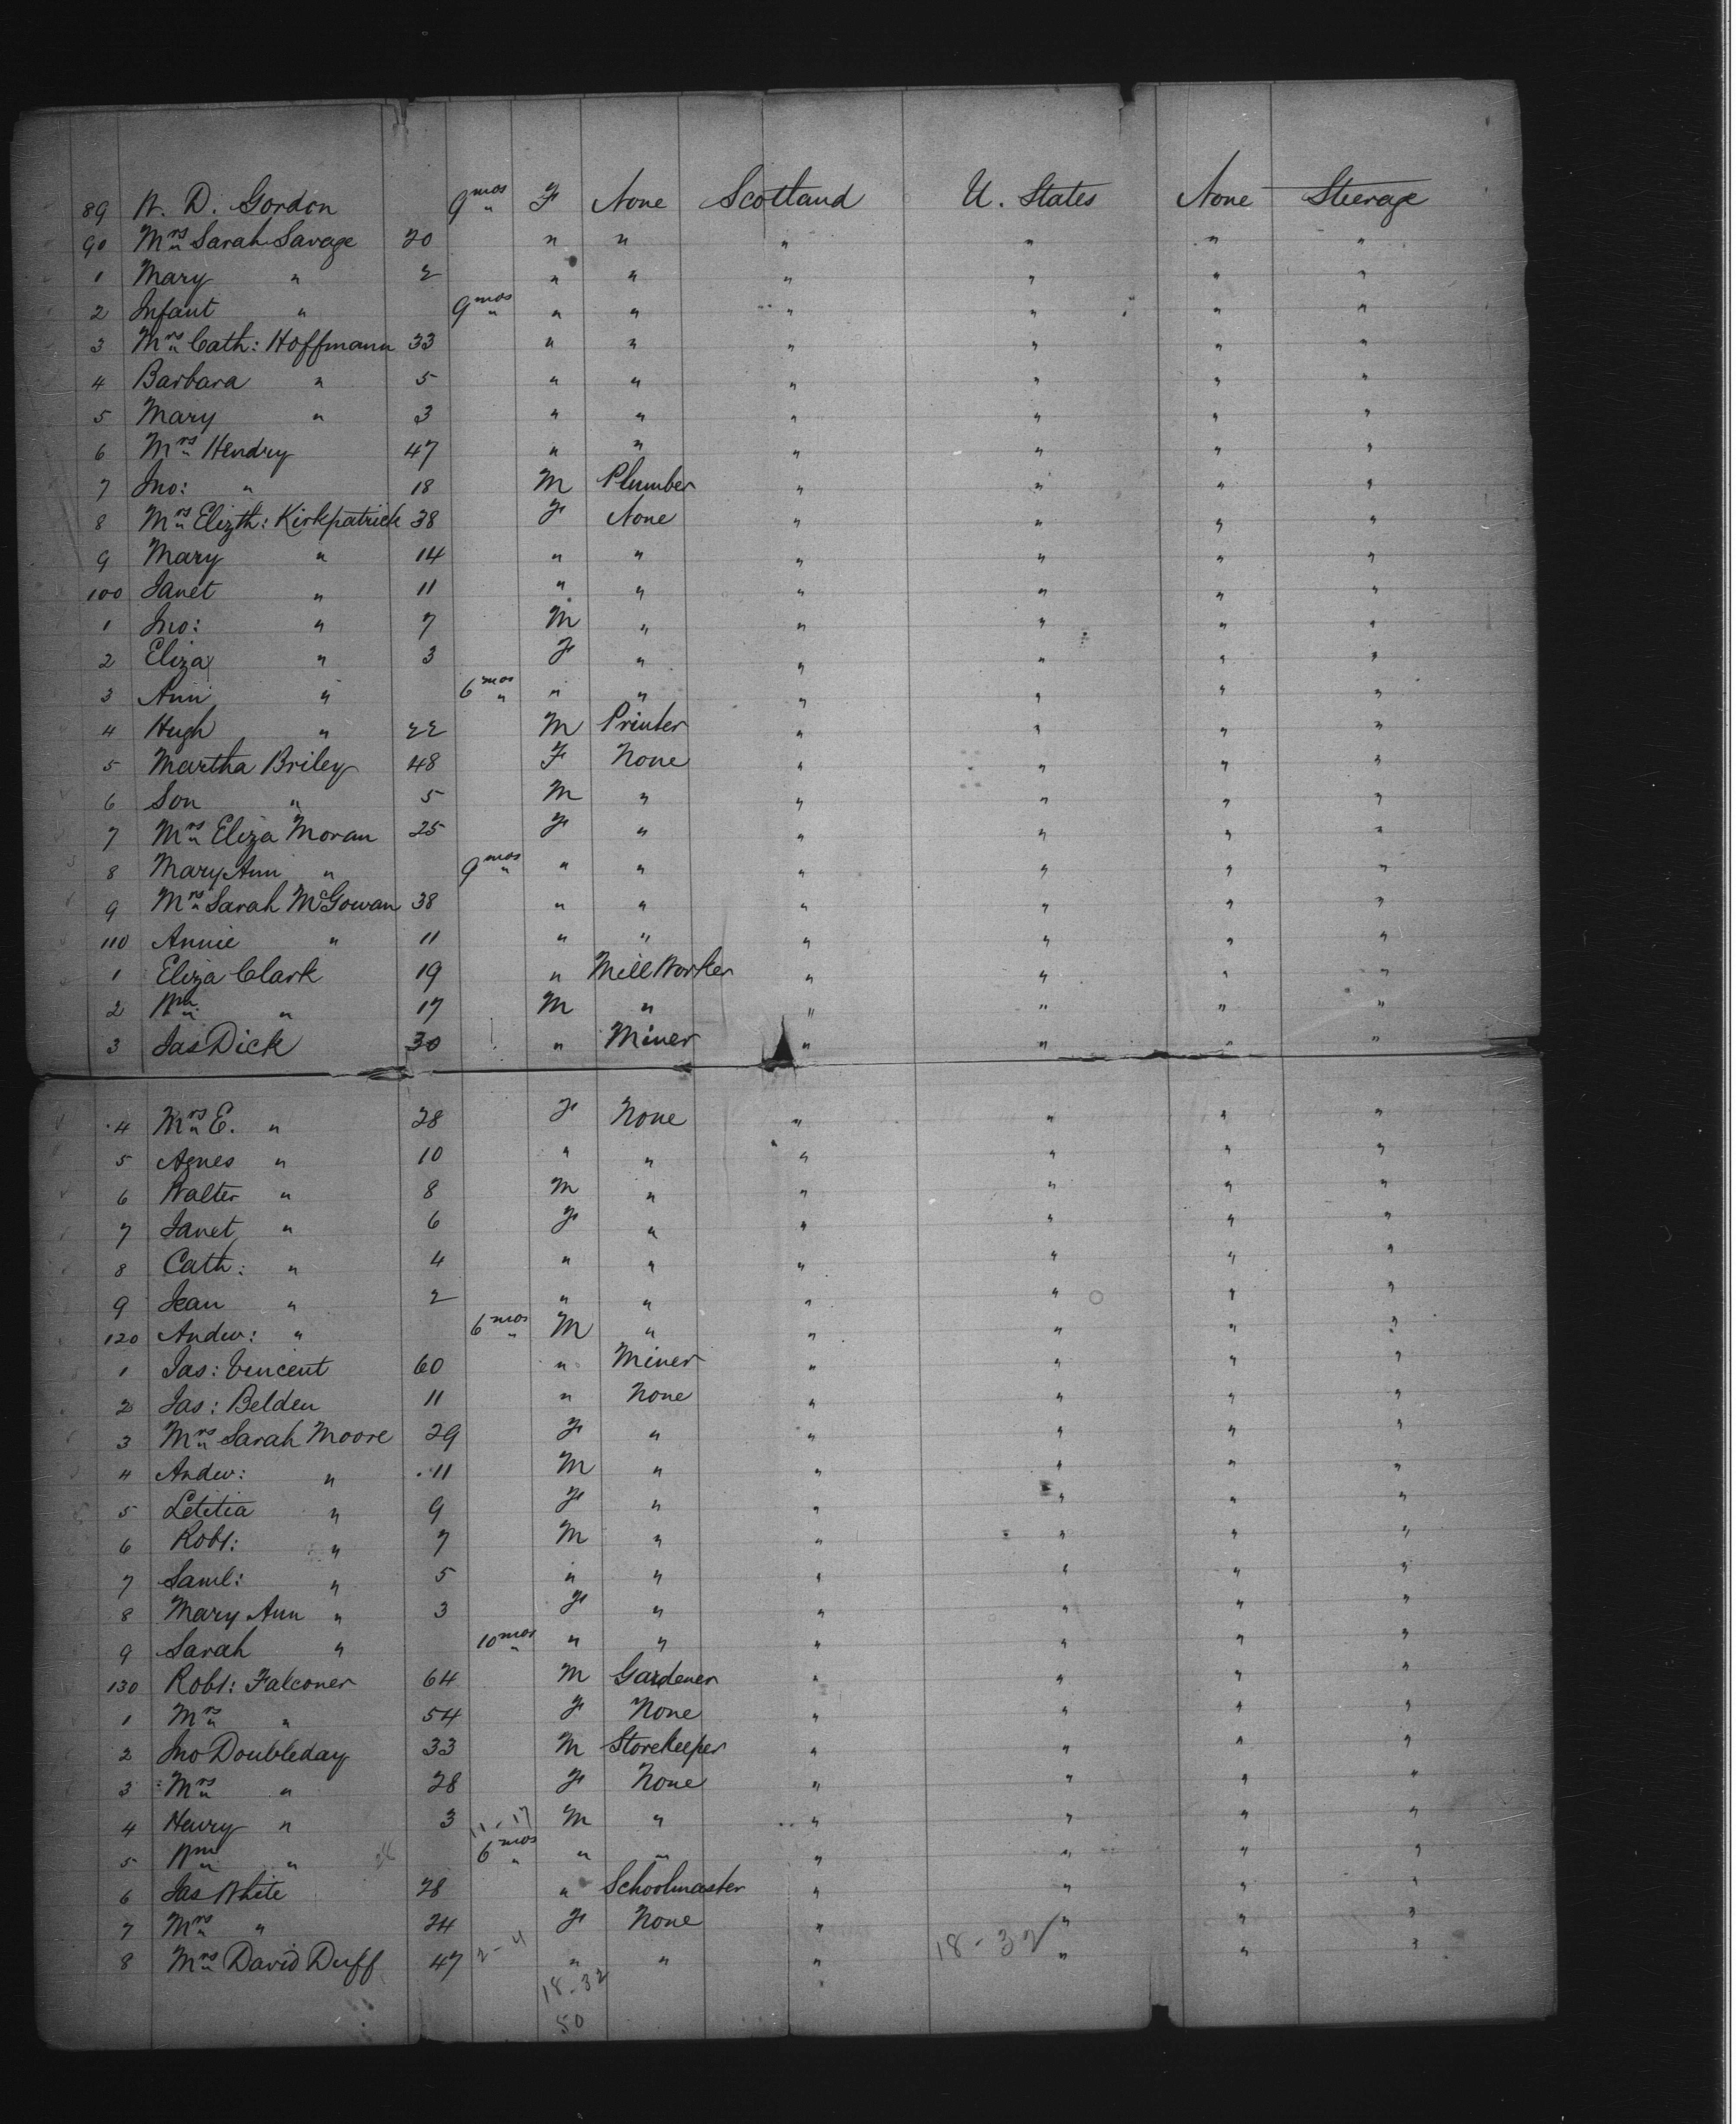 89 W. D. Gordon 9 mos " F None Scotland U. States None Steerage
90 Mrs Sarah Savage 20 " " " " " "
1 Mary " 2 " " " " " "
2 Infant " 9 mos " " " " " " "
3 Mrs Cath: Hoffmann 33 " " " " " "
4 Barbara " 5 " " " " " "
5 Mary " 3 " " " " " "
6 Mrs Hendry 47 " " " " " "
7 Jno: " 18 M Plumber " " " "
8 Mrs Elizth: Kirkpatrick 38 F None " " " "
9 Mary " 14 " " " " " "
100 Janet " 11 " " " " " "
1 Jno: " 7 M " " " " "
2 Eliza " 3 F " " " " "
3 Ann " 6 mos " " " " " " "
4 Hugh " 22 M Printer " " " "
5 Martha Briley 48 F None " " " "
6 Son " 5 M " " " " "
7 Mrs Eliza Moran 25 F " " " " "
8 Mary Ann " 9 mos " " " " " " "
9 Mrs Sarah McGowan 38 " " " " " "
110 Annie " 11 " " " " " "
1 Eliza Clark 19 " Mill Worker " " " "
2 Wm " 17 M " " " " "
3 Jas Dick 30 " Miner " " " "
4 Mrs E. " 28 F None " " " "
5 Agnes " 10 " " " " " "
6 Walter " 8 M " " " " "
7 Janet " 6 F " " " " "
8 Cath: " 4 " " " " " "
9 Jean " 2 " " " " " "
120 Andw: " 6 mos " M " " " " "
1 Jas: Vincent 60 " Miner " " " "
2 Jas: Belden 11 " None " " " "
3 Mrs Sarah Moore 29 F " " " " "
4 Andw: " 11 M " " " " "
5 Letitia " 9 F " " " " "
6 Robt: " 7 M " " " " "
7 Saml: " 5 " " " " " "
8 Mary Ann " 3 F " " " " "
9 Sarah " 10 mos " " " " " " "
130 Robt: Falconer 64 M Gardener " " " "
1 Mrs " 54 F None " " " "
2 Jno Doubleday 33 M Storekeeper " " " "
3 Mrs " 28 F None " " " "
4 Henry " 3 11-17 M " " " " "
5 Wm " 6 mos " " " " " " "
6 Jas White 28 " Schoolmaster " " " "
7 Mrs " 24 F None " " " "
8 Mrs David Duff 47 2-4 " " " 18-32 " " "
18-32
50